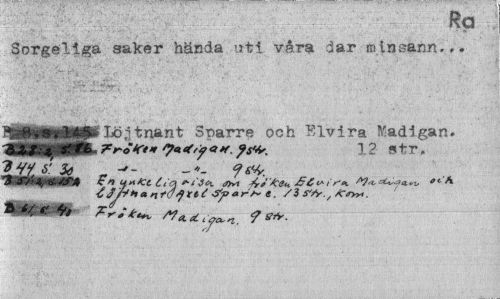 Ra
Sorgeliga saker hända uti våra dar minsann...
B 8.s.145 Löjtnant Sparre och Elvira Madigan.
12 str.
B 28:2, s. 86 Fröken Madigan. 9 str.
B 44 s. 30 -"- -"- 9 str.
B 51:2, s. 15A En ynkelig visa om fröken Elvira Madigan och
löjtnant Axel Sparre. 13 str., kom.
B 61, s. 40 Fröken Madigan. 9 str.